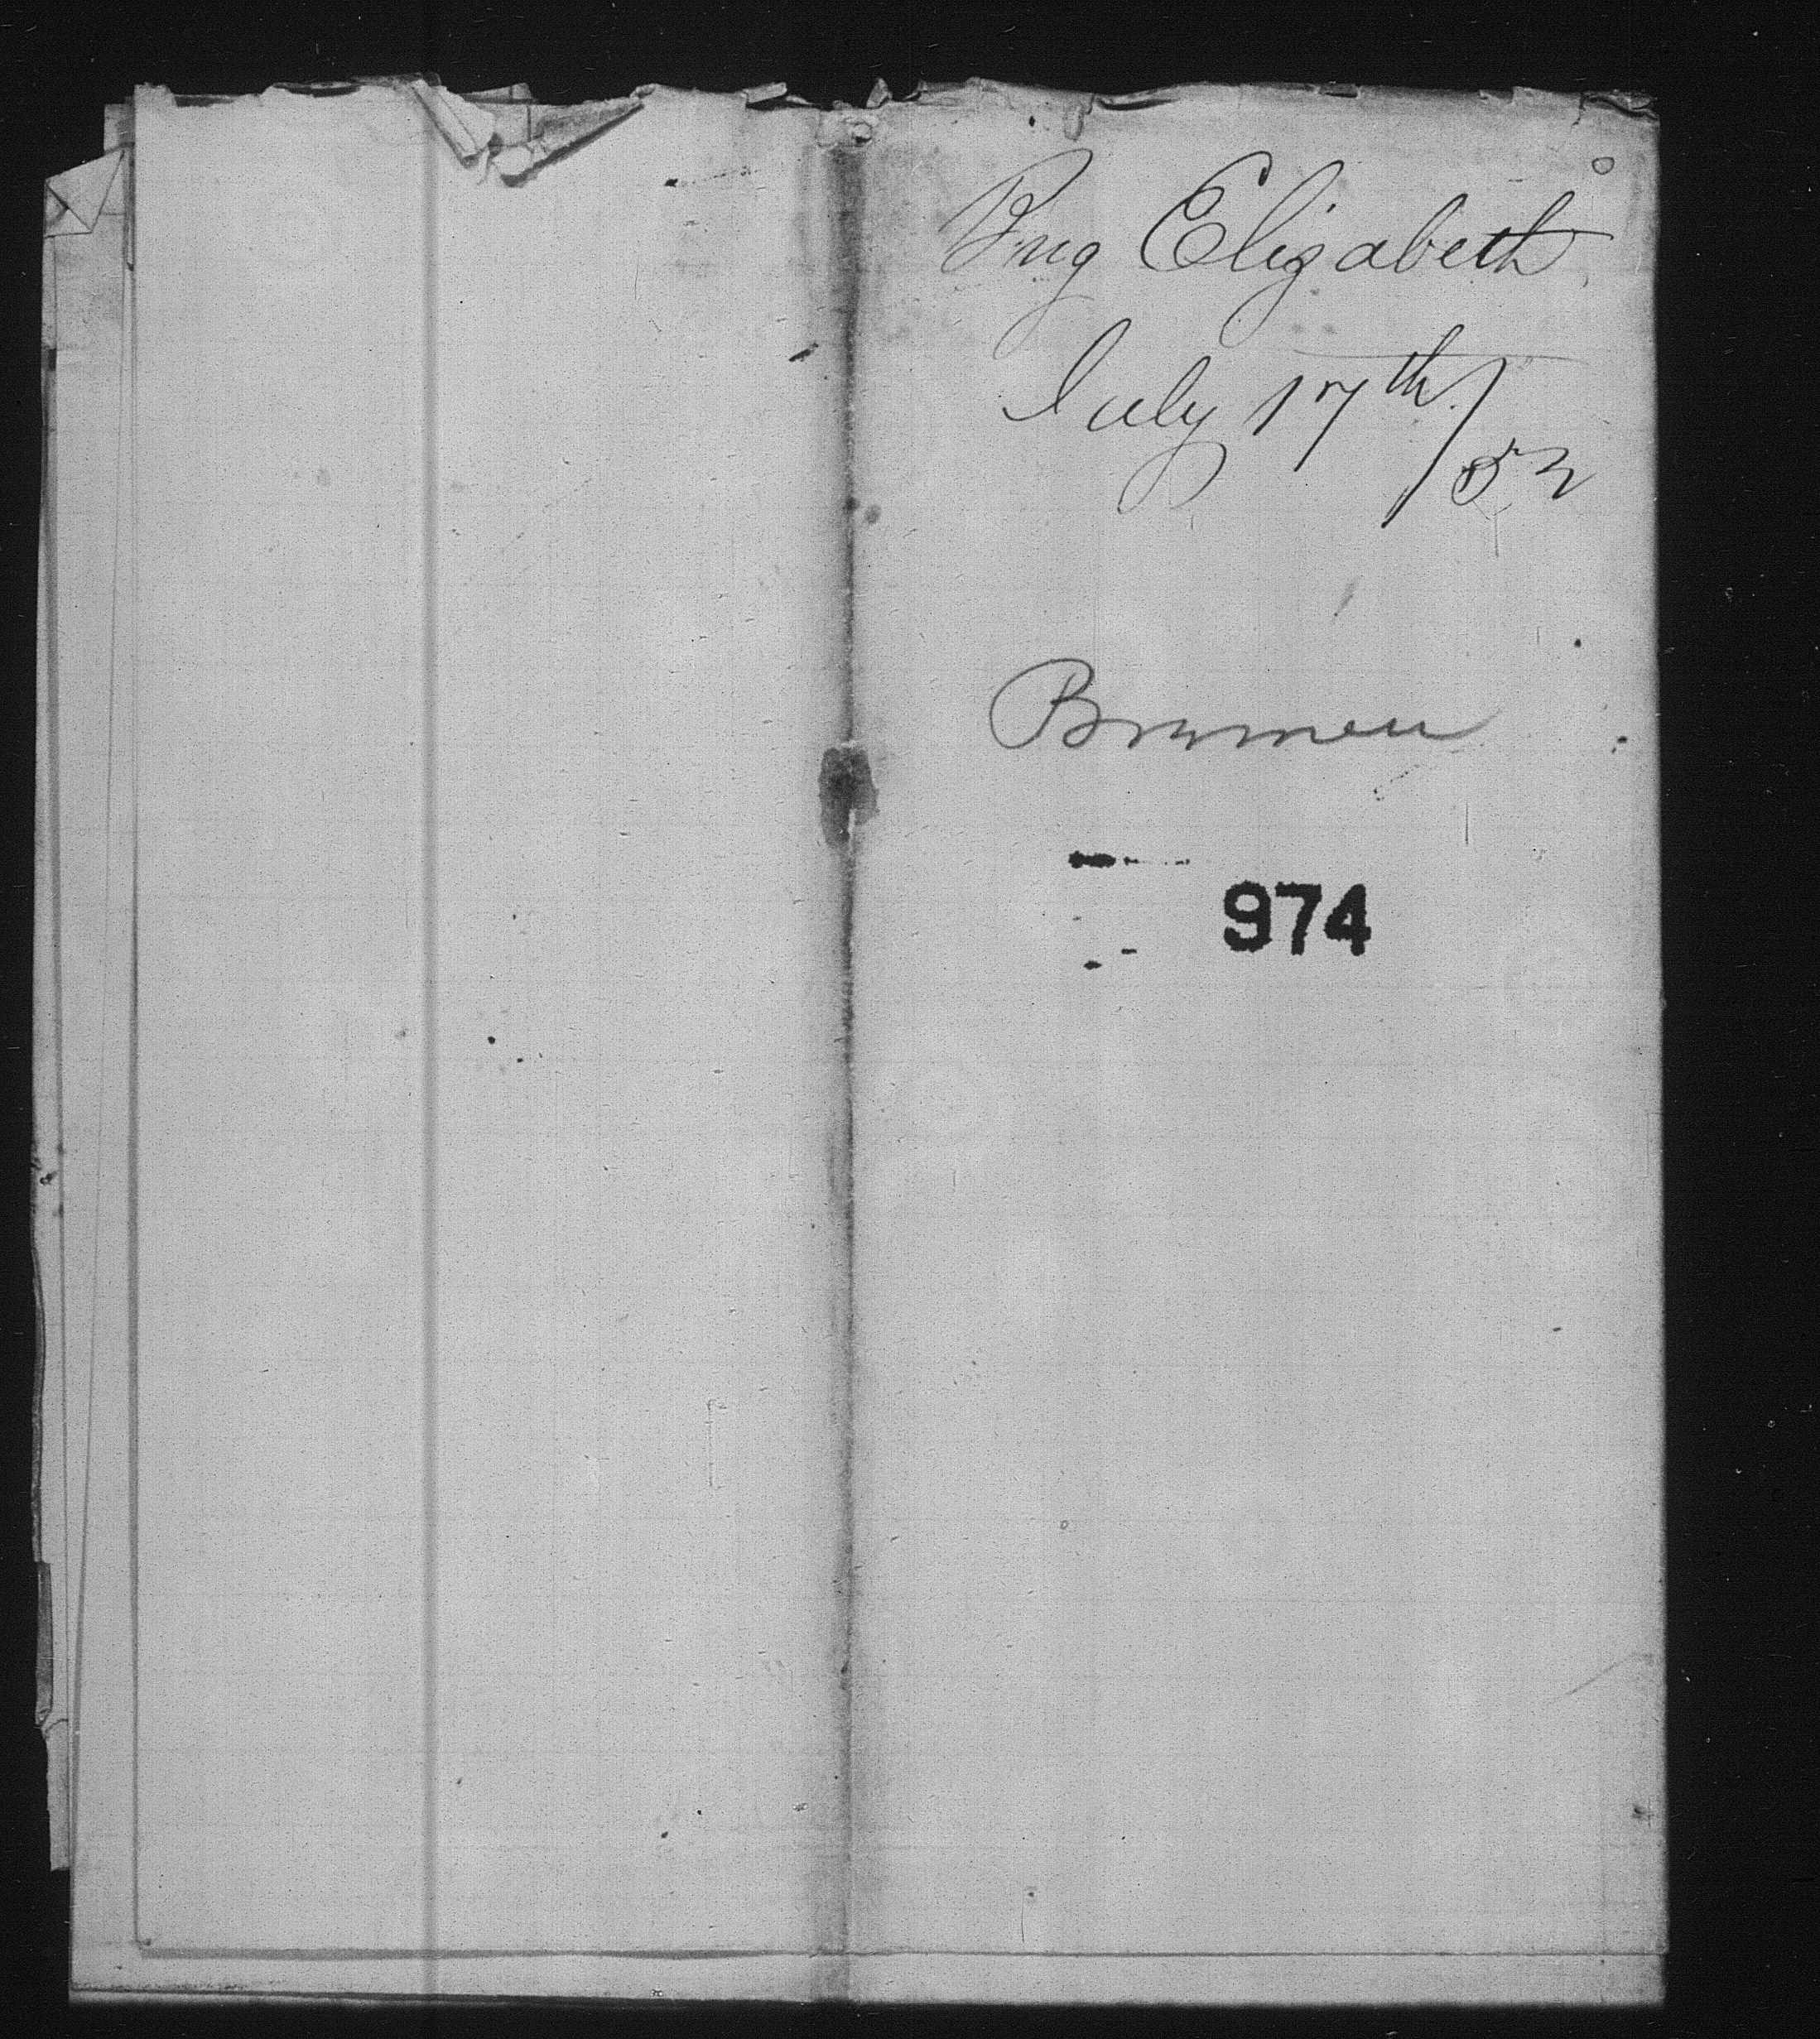 Brig Elizabeth
July 17th/
52
Bremen
974